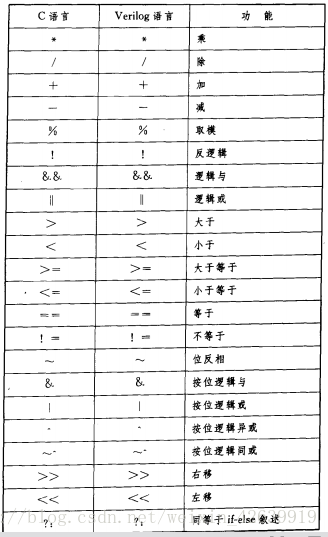 C 语言 Verilog 语言 功 能
* * 乘
/ / 除
+ + 加
- - 减
% % 取模
! ! 反逻辑
&& && 逻辑与
|| || 逻辑或
> > 大于
< < 小于
>= >= 大于等于
<= <= 小于等于
== == 等于
!= != 不等于
~ ~ 位反相
& & 按位逻辑与
| | 按位逻辑或
^ ^ 按位逻辑异或
~^ ~^ 按位逻辑同或
>> >> 右移
<< << 左移
?: ?: 同等于 if-else 叙述